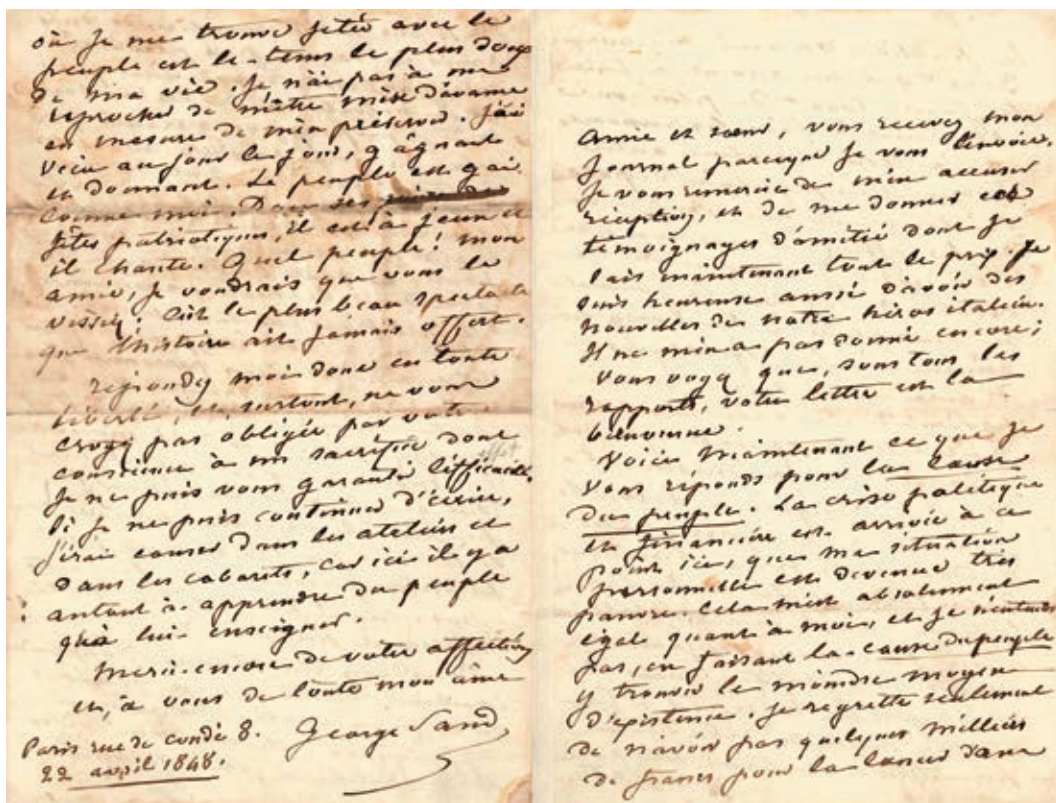 où je me trouve jetée avec le
peuple est le tems le plus doux
de ma vie. Je n'ai pas à me
reprocher de m'être mise d'avance
en mesure de m'en préserver. J'ai
vécu au jour le jour, gagnant
et donnant. Le peuple est gai
comme moi. Dans ses
fêtes patriotiques, il est à jeun et
il chante. Quel peuple! mon
amie, je voudrais que vous le
vissiez. C'est le plus beau spectacle
que l'histoire ait jamais offert.
répondez moi donc en toute
liberté, et, surtout, ne vous
croyez pas obligée par votre
conscience à un sacrifice dont
je ne puis vous garantir l'efficacité.
Si je ne puis continuer d'écrire,
j'irai causer dans les ateliers et
dans les cabarets, car ici il y a
autant à apprendre du peuple
qu'à lui enseigner.
Merci encore de votre affection
et, à vous de toute mon âme
George Sand
Paris rue de condé 8.
22 avril 1848.
Amie et sœur, vous recevez mon
journal parceque je vous l'envoie.
Je vous remercie de m'en accuser
réception, et de me donner ces
témoignages d'amitié dont je
sais maintenant tout le prix. Je
suis heureuse aussi d'avoir des
nouvelles de notre héros italien.
Il ne m'en a pas donné encore;
Vous voyez que, sous tous les
rapports, votre lettre est la
bienvenue.
Voici maintenant ce que je
vous réponds pour la cause
du peuple. La crise politique
et financière est arrivée à ce
point ici, que ma situation
personnelle est devenue très
pauvre. Cela m'est absolument
égal quant à moi, et je n'entends
pas, en faisant la cause du peuple
y trouver le moindre moyen
d'existence. Je regrette seulement
de n'avoir pas quelques milliers
de francs pour la lancer dans